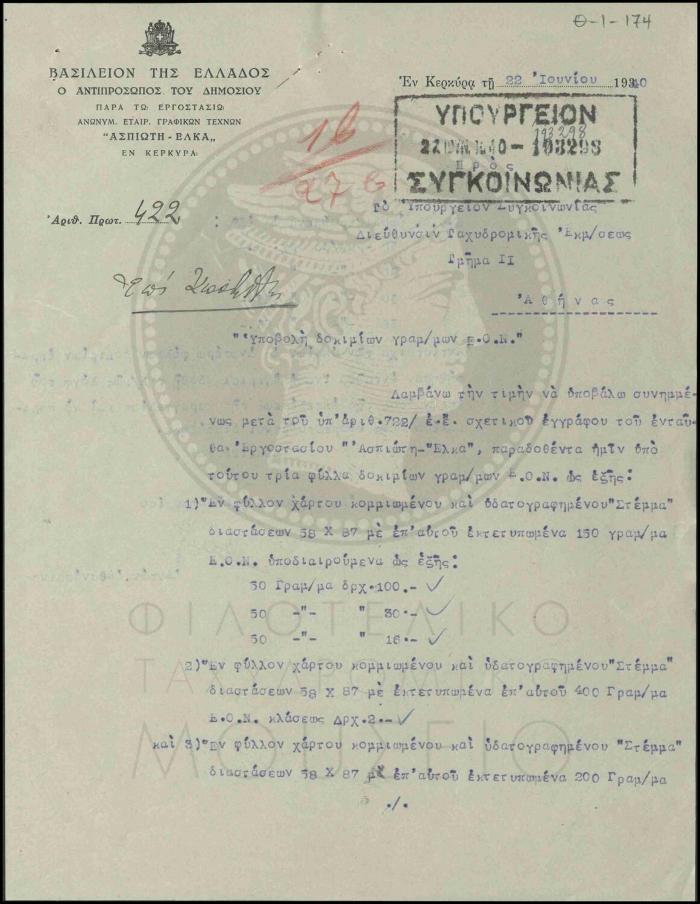 Θ-1-174
ΒΑΣΙΛΕΙΟΝ ΤΗΣ ΕΛΛΑΔΟΣ
Ο ΑΝΤΙΠΡΟΣΩΠΟΣ ΤΟΥ ΔΗΜΟΣΙΟΥ
ΠΑΡΑ ΤΩ ΕΡΓΟΣΤΑΣΙΩ
ΑΝΩΝΥΜ. ΕΤΑΙΡ. ΓΡΑΦΙΚΩΝ ΤΕΧΝΩΝ
"ΑΣΠΙΩΤΗ - ΕΛΚΑ„
ΕΝ ΚΕΡΚΥΡΑ
Ἐν Κερκύρᾳ τῇ 22 Ἰουνίου 1940
ΥΠΟΥΡΓΕΙΟΝ
193298
27 ΙΟΥΝ. 1940 - 193298
Πρὸς
ΣΥΓΚΟΙΝΩΝΙΑΣ
16
27 6
Ἀριθ. Πρωτ. 422
Τὸ Ὑπουργεῖον Συγκοινωνίας
Διεύθυνσιν Ταχυδρομικῆς Ἐκμ/σεως
Τμῆμα ΙΙ
Ἀθήνας
"Ὑποβολὴ δοκιμίων γραμ/μων Ε.Ο.Ν."
Λαμβάνω τὴν τιμὴν νὰ ὑποβάλω συνημμέ-
νως μετὰ τοῦ ὑπ'ἀριθ.722/ ἐ.ἔ. σχετικοῦ ἐγγράφου τοῦ ἐνταῦ-
θα Ἐργοστασίου "Ἀσπιώτη-Ἔλκα", παραδοθέντα ἡμῖν ὑπὸ
τούτου τρία φύλλα δοκιμίων γραμ/μῶν Ε.Ο.Ν. ὡς ἑξῆς:
1)Ἓν φύλλον χάρτου κομμιωμένου καὶ ὑδατογραφημένου"Στέμμα"
διαστάσεων 58 Χ 87 μὲ ἐπ'αὐτοῦ ἐκτετυπωμένα 150 γραμ/μα
Ε.Ο.Ν. ὑποδιαιρούμενα ὡς ἑξῆς:
50 Γραμ/μα δρχ.100.-
50 -"- " 30.-
50 -"- " 16.-
2)Ἓν φύλλον χάρτου κομμιωμένου καὶ ὑδατογραφημένου"Στέμμα"
διαστάσεων 58 Χ 87 μὲ ἐκτετυπωμένα ἐπ'αὐτοῦ 400 Γραμ/μα
Ε.Ο.Ν. κλάσεως Δρχ.2.-
καὶ 3)Ἓν φύλλον χάρτου κομμιωμένου καὶ ὑδατογραφημένου "Στέμμα"
διαστάσεων 58 Χ 87 μὲ ἐπ'αὐτοῦ ἐκτετυπωμένα 200 Γραμ/μα
./.
ΦΙΛΟΤΕΛΙΚΟ
ΤΑΧΥΔΡΟΜΙΚΟ
ΜΟΥΣΕΙΟ